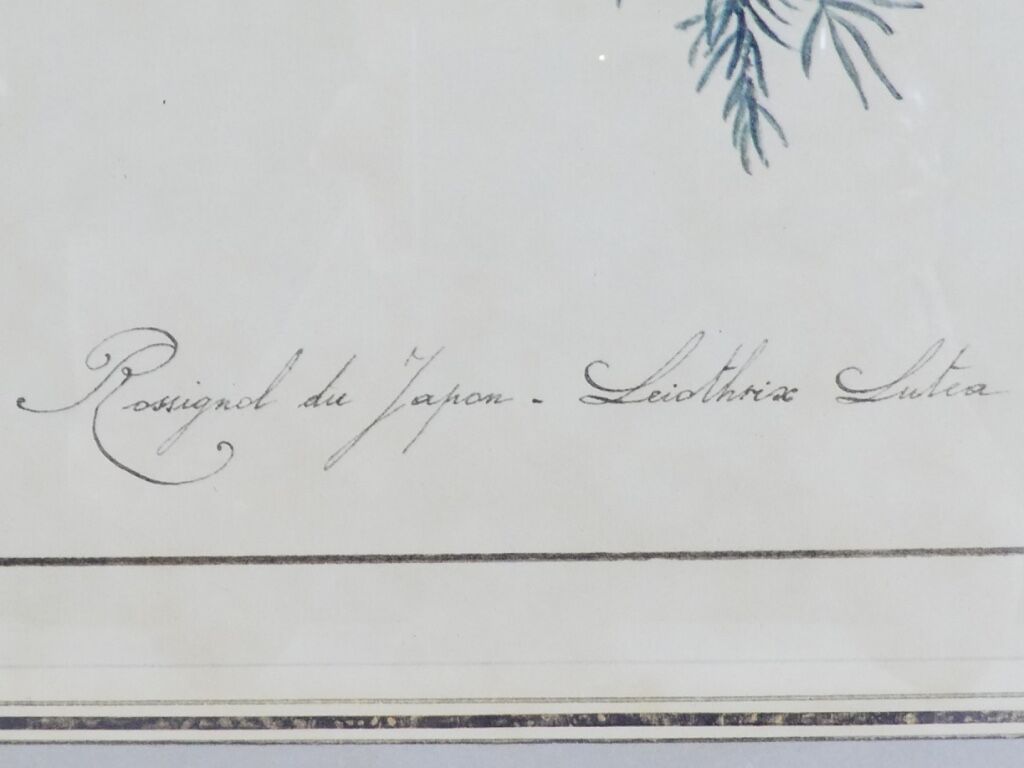 Rossignol du Japon - Leiothrix Lutea